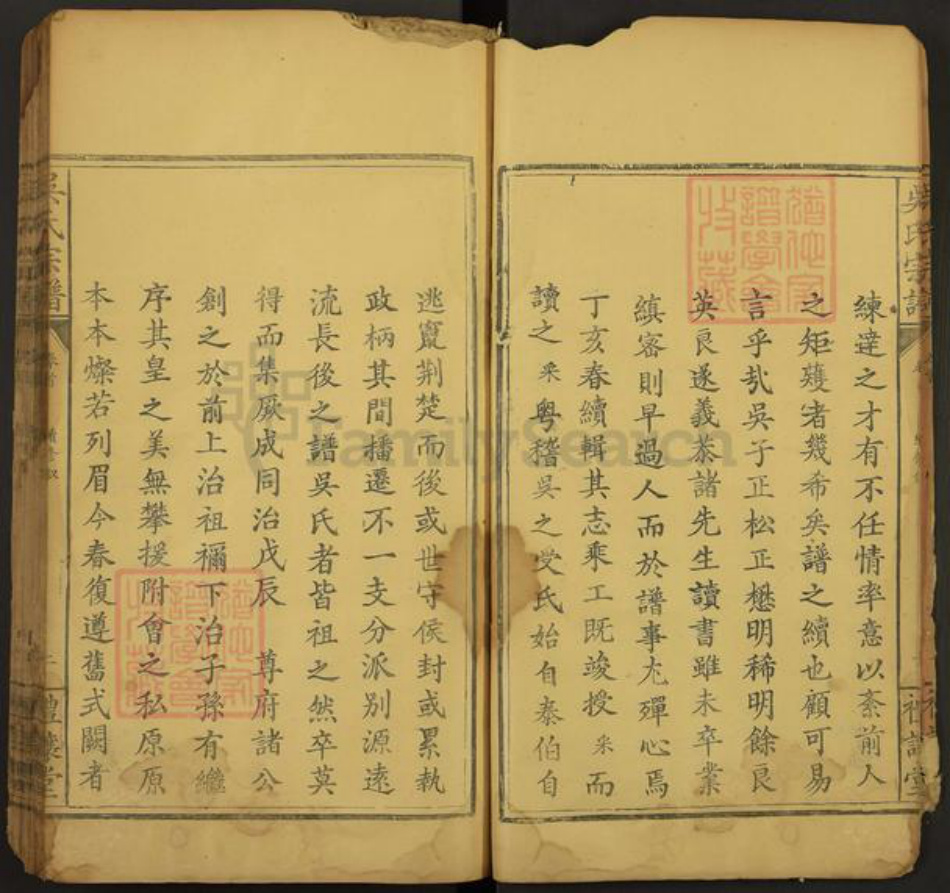 練達之才有不任情率意以紊前人
之矩矱者幾希矣譜之續也顧可易
言乎哉吳子正松正懋明稀明餘良
英良遂義茶諸先生讀書雖未卒業
縝密則早過人而於譜事尤殫心焉
丁亥春續輯其志乘工既竣授釆而
讀之釆粵稽吳之受氏始自泰伯自
逃竄荆楚而後或世守侯封或累執
政柄其間播遷不一支分派别源遠
流長後之譜吳氏者皆祖之然卒莫
得而集厥成同治戊辰 尊府諸公
創之於前上治祖禰下治子孫有繼
序其皇之美無攀援附會之私原原
本本燦若列眉今春復遵舊式闕者
吳氏宗譜
禮讓堂
吳氏宗譜
FamilySearch